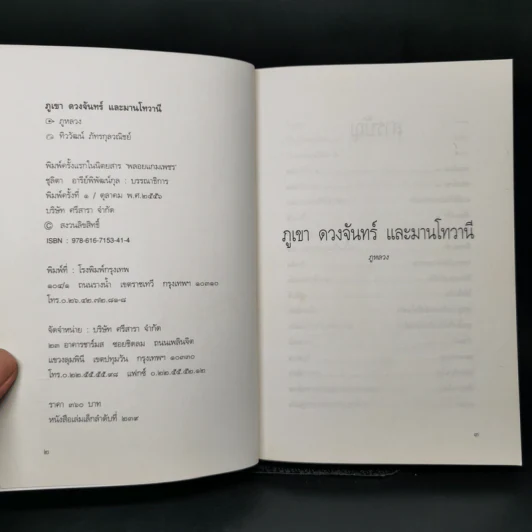 ภูเขา ดวงจันทร์ และมานโทวานี
ภูหลวง
ทิววัฒน์ ภัทรกุลวณิชย์
พิมพ์ครั้งแรกในนิตยสาร 'พลอยแกมเพชร'
ชุลิตา อารีย์พิพัฒน์กุล : บรรณาธิการ
พิมพ์ครั้งที่ ๑ / ตุลาคม พ.ศ.๒๕๕๖
บริษัท ศรีสารา จำกัด
© สงวนลิขสิทธิ์
ISBN : 978-616-7153-41-4
พิมพ์ที่ : โรงพิมพ์กรุงเทพ
๑๐๔/๑ ถนนรางน้ำ เขตราชเทวี กรุงเทพฯ ๑๐๓๑๐
โทร.๐.๒๖.๔๒.๗๒.๘๑-๘
จัดจำหน่าย : บริษัท ศรีสารา จำกัด
๒๓ อาคารชาร์มส ซอยชิดลม ถนนเพลินจิต
แขวงลุมพินี เขตปทุมวัน กรุงเทพฯ ๑๐๓๓๐
โทร.๐.๒๒.๕๕.๕๕.๙๘ แฟกซ์ ๐.๒๒.๕๕.๕๒.๑๒
ราคา ๓๖๐ บาท
หนังสือเล่มเล็กลำดับที่ ๒๓๙
๒
ภูเขา ดวงจันทร์ และมานโทวานี
ภูหลวง
๓